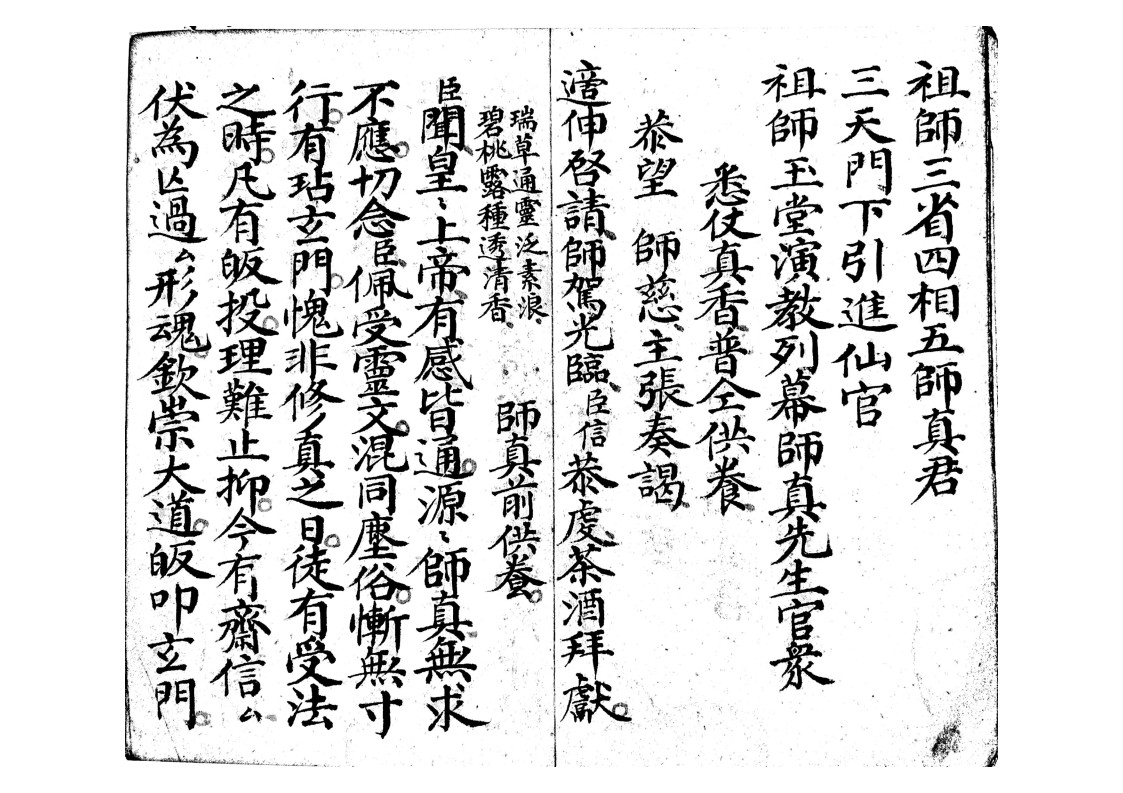 祖師三省四相五師真君
三天門下引進仙官
祖師玉堂演教列幕師真先生官衆
悉仗真香普仝供養
恭望　師慈主張奏謁
適伸啓請師駕光臨臣信恭虔茶酒拜獻
瑞草通靈泛素浪
碧桃露種透清香　師真前供養
臣聞皇〻上帝有感皆通源〻師真無求
不應切念臣佩受靈文混同塵俗慚無寸
行有玷玄門愧非修真之日徒有受法
之時凡有皈投理難止抑今有齋信厶
伏為亾過厶形魂欽崇大道皈叩玄門